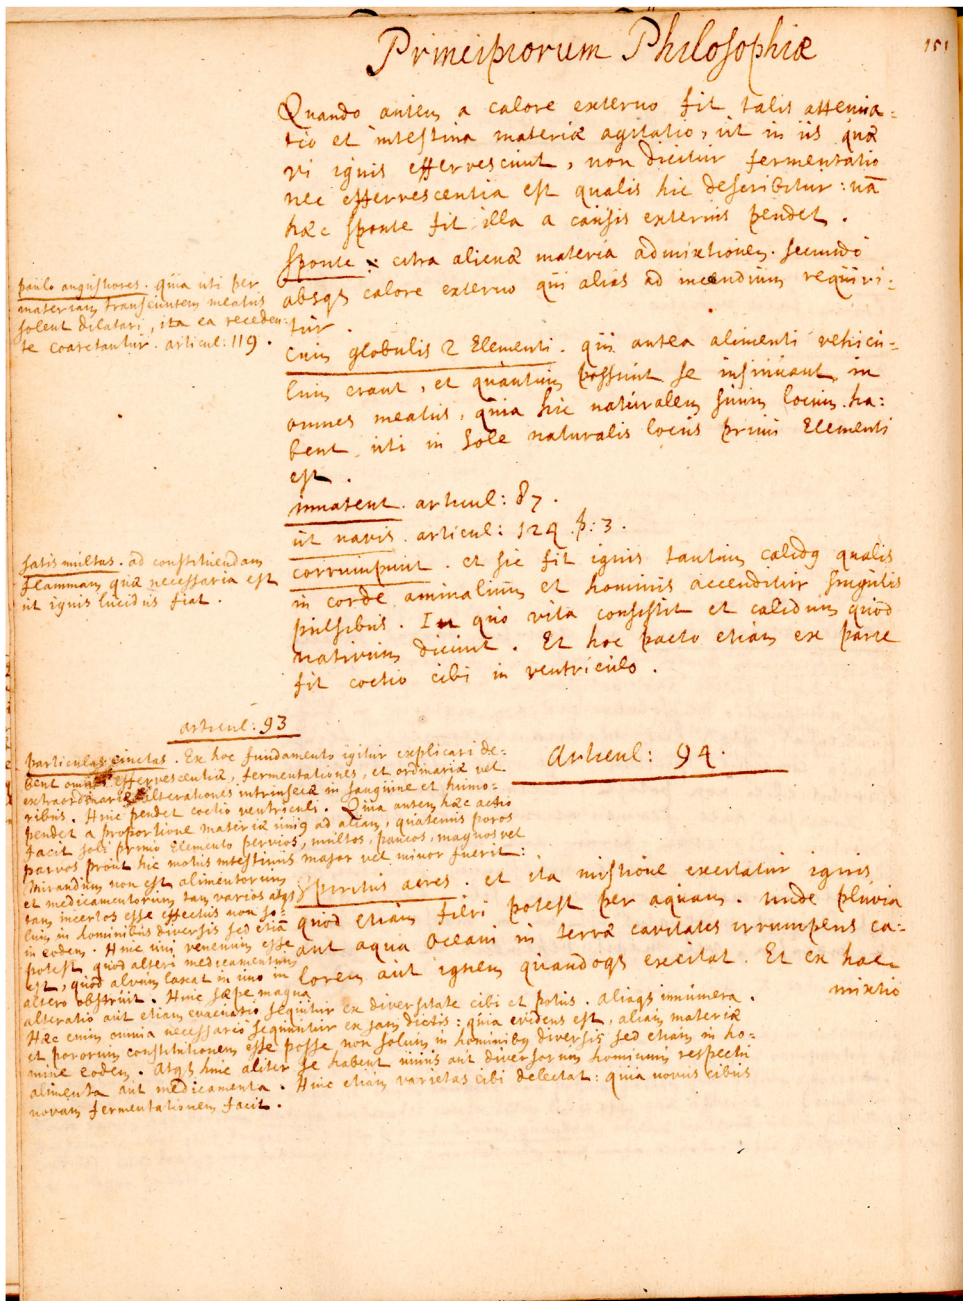 Principiorum Philosophiæ
151
Quando autem a calore externo fit talis attenua-
tio et intestina materiæ agitatio, ut in iis quæ
vi ignis effervescunt, non dicitur fermentatio
nec effervescentia est qualis hic describitur: nā
hæc sponte fit illa a causis externis pendet.
sponte x citra alienæ materiæ admixtionem. secundo
absqs calore externo qui alias ad incendium requiri-
tur.
cum globulis 2 Elementi. qui antea alimenti vehicu-
lum erant, et quantum possunt se insinuant in
omnes meatus, quia hic naturalem suum locum ha:
bent uti in Sole naturalis locus primi Elementi
est.
innatent. articul: 87.
ut navis. articul: 129. p: 3.
corrumpunt. et sic fit ignis tantum calidq qualis
in corde animalium et hominis accenditur singulis
pulsibus. In quo vita consistit et calidum quod
nativum dicunt. Et hoc pacto etiam ex parte
fit coctio cibi in ventriculo.
paulo angustiores. quia uti per
materiam transeuntem meatus
solent dilatari, ita ea receden-
te coarctantur. articul: 119.
satis multas. ad constituendam
flammam quæ necessaria est
ut ignis lucidus fiat.
articul: 93
particulas ejnctas. Ex hoc fundamento igitur explicari de-
bent omnes effervescentiæ, fermentationes, et ordinariæ vel
extraordinariæ alterationes intrinsecæ in sanguine et humo-
ribus. Hinc pendet coctio ventriculi. Quia autem hæc actio
pendet a proportione materiæ uniq ad aliam, quatenus poros
facit soli primo Elemento pervios, multos, paucos, magnos vel
parvos prout hic motus intestinus major vel minor fuerit:
Mirandum non est alimentorum
et medicamentorum tam varios atqs
tam incertos esse effectus non so-
lum in hominibus diversis sed etiā
in eodem. Hinc uni venenum esse
potest quod alteri medicamentum
est, quod alvum laxat in uno in
altero obstruit. Hinc sæpe magna
alteratio aut etiam evacuatio sequitur ex diversitate cibi et potus. aliaqs innumera.
Hæc enim omnia necessario sequuntur ex jam dictis: quia evidens est, aliam materiæ
et pororum constitutionem esse posse non solum in hominibq diversis sed etiam in ho-
mine eodem. Atqs hinc aliter se habent unius aut diversorum hominum respectu
alimenta aut medicamenta. Hinc etiam varietas cibi delectat: quia novus cibus
novam fermentationem facit.
Articul: 94.
Spiritus acres. et ita mistione excitatur ignis
quod etiam fieri potest per aquam. unde pluvia
aut aqua Oceani in terræ cavitates irrumpens ca-
lorem aut ignem quandoqs excitat. Et ex hac
mixtio